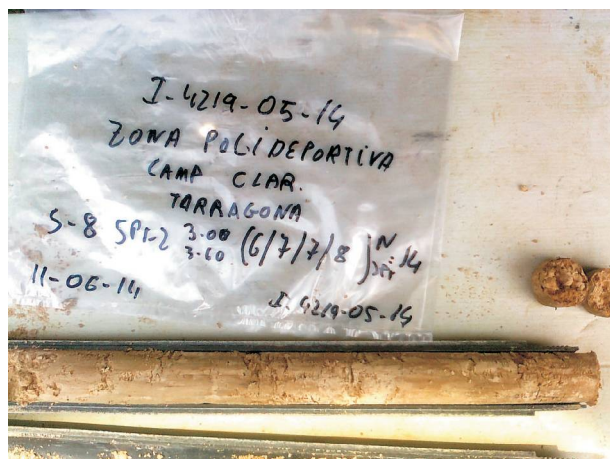 I-4219-05-14
ZONA POLIDEPORTIVA
CAMP CLAR.
TARRAGONA
S-8 SPT-2 3.00 3.60 (6/7/7/8) N SPT 14
11-06-14
I-4219-05-14